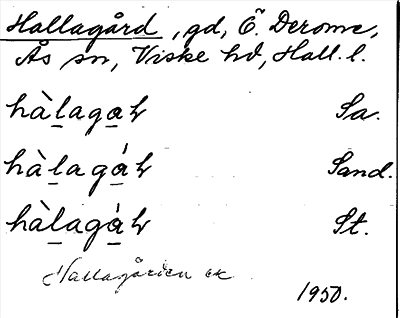 Hallagård, gd, Ö. Derome,
Ås sn, Viske hd, Hall. l.
hàlagaɬ Sa.
hàlagáɬ Sand.
hàlagàɬ St.
Hallagården ek
1950.